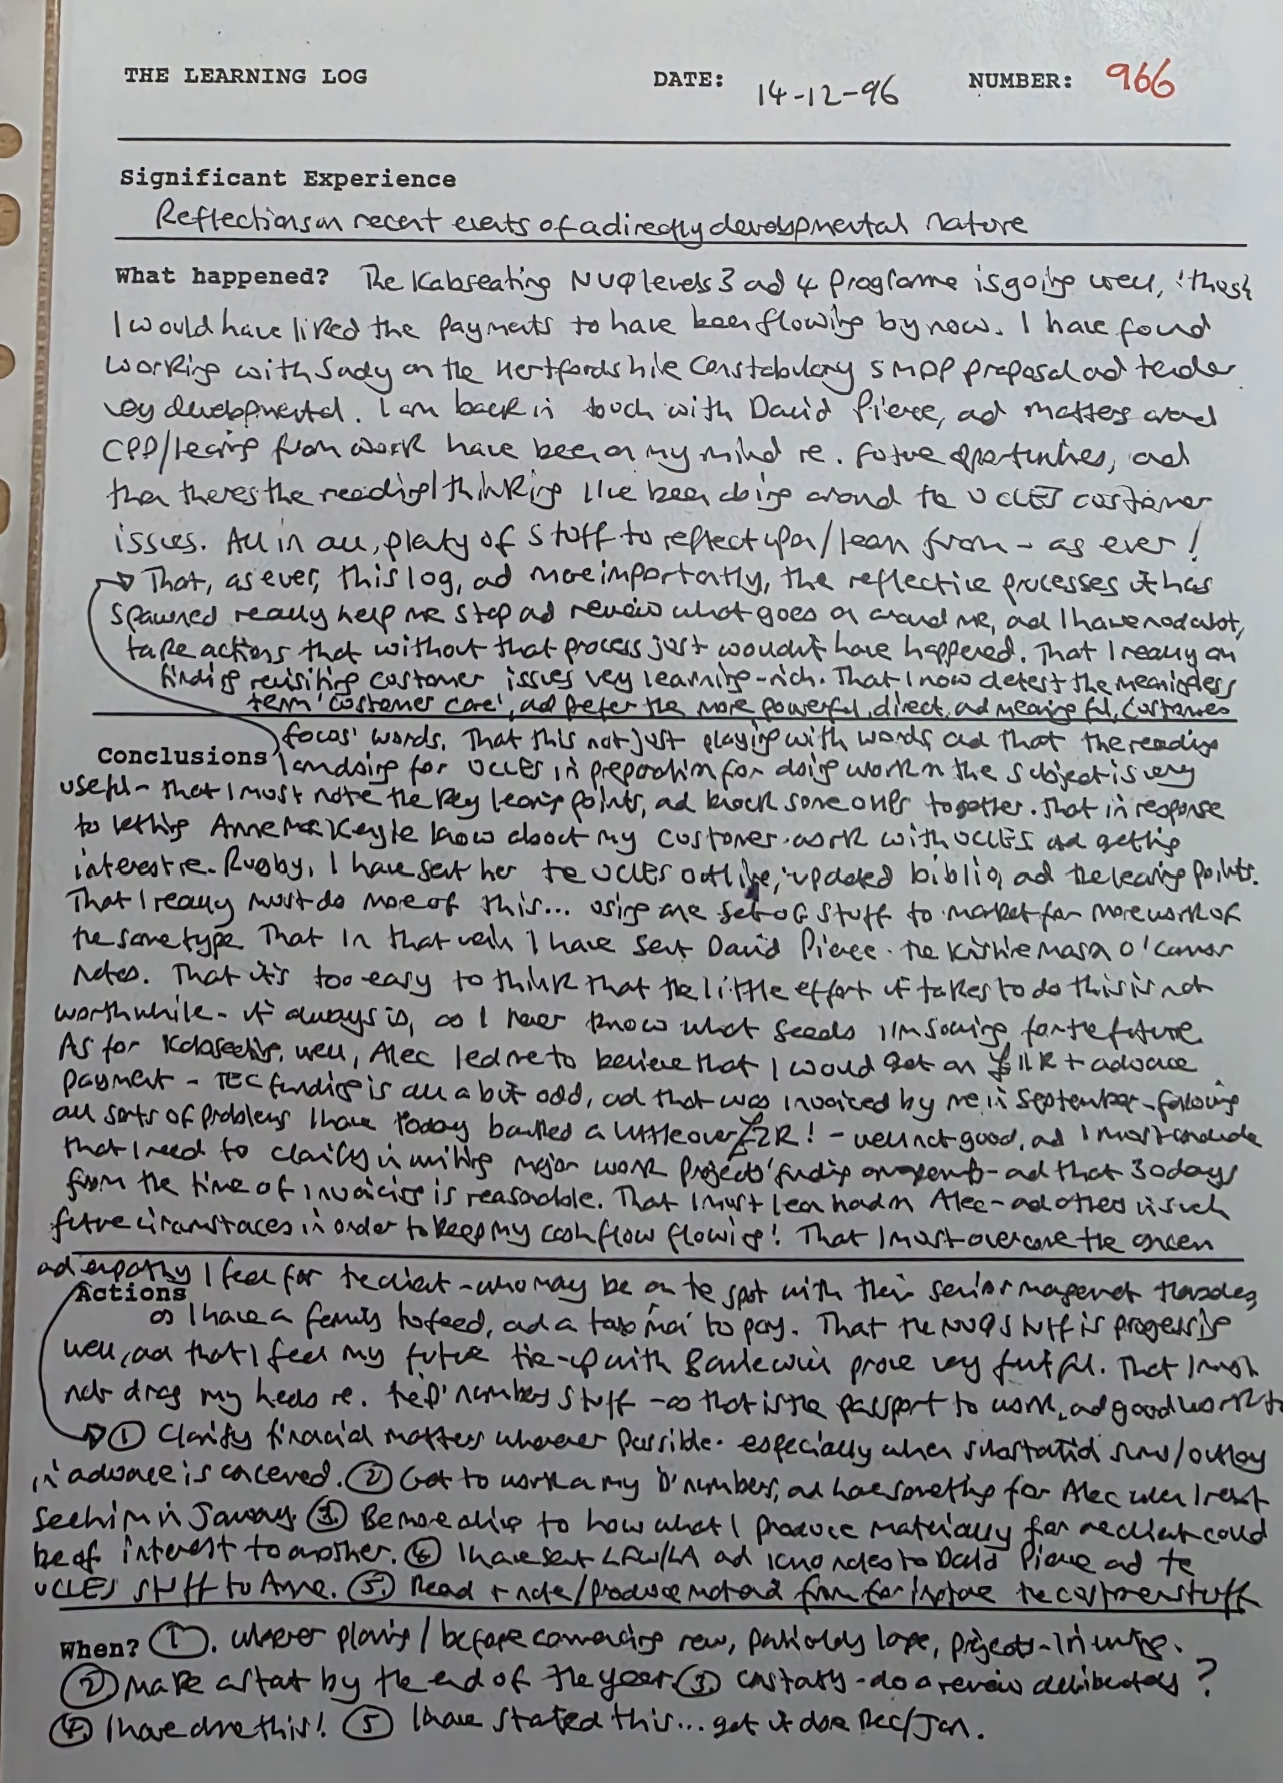 THE LEARNING LOG DATE: 14-12-96 NUMBER: 966
Significant Experience
Reflections on recent events of a directly developmental nature
What happened? The Kabseating NVQ levels 3 ad 4 programe is going well, 'though
I would have liked the payments to have been flowing by now. I have found
working with Sady on the Hertfordshire Constabulary SMDP proposal ad tender
very developmental. I am back in touch with David Pierce, ad matters around
CPD/learning from work have been on my mind re. future opportunities, ad
then theres the reading/thinking I've been doing around the UCLES customer
issues. All in all, plenty of stuff to reflect upon/learn from - as ever!
That, as ever, this log, ad more importantly, the reflective processes it has
spawned really help me stop ad review what goes on around me, ad I have no doubt,
take actions that without that process just wouldn't have happened. That I really am
finding revisiting customer issues very learning-rich. That I now detest the meaningless
term 'customer care', ad prefer the more powerful, direct, ad meaningful, 'customer
focus' words. That this not just playing with words, ad that the reading
Conclusions I am doing for UCLES in preparation for doing work on the subject is very
useful - that I must note the key learning points, ad knock some OHPs together. That in response
to letting Anne know about my customer work with UCLES ad getting
interest re. Rugby, I have sent her the UCLES outline, updated biblio, ad the learning points.
That I really must do more of this... using one set of stuff to market for more work of
the same type. That in that vein I have sent David Pierce the O'Connor
notes. That it's too easy to think that the little effort it takes to do this is not
worthwhile - it always is, as I never know what seeds I'm sowing for the future.
As for Kabseating, well, Alec led me to believe that I would get an £11K + advance
payment - TEC funding is all a bit odd, ad that was invoiced by me in September - following
all sorts of problems I have today banked a little over £2K! - well not good, ad I must conclude
that I need to clarify in writing major work projects' funding arrangements - ad that 30 days
from the time of invoicing is reasonable. That I must lean hard on Alec - ad others in such
future circumstances in order to keep my cash flow flowing! That I must overcome the concern
ad empathy I feel for the client - who may be on the spot with their senior management themselves,
Actions
as I have a family to feed, ad a tax man to pay. That the NVQ stuff is progressing
well, ad that I feel my future tie-up with will prove very fruitful. That I must
not drag my heels re. the 'D' numbers stuff - as that is the passport to work, ad good work to
① Clarify financial matters wherever possible - especially when substantial sums/outlay
in advance is concerned. ② Get to work on my 'D' numbers, ad have something for Alec when I next
see him in January. ③ Be more alive to how what I produce materially for one client could
be of interest to another. ④ I have sent notes to David Pierce ad the
UCLES stuff to Anne. ⑤ Read + note/produce material from the customer stuff
When? ①. wherever planning/before commencing new, particularly large, projects - in writing.
② make a start by the end of the year ③ constantly - do a review deliberately?
④ I have done this! ⑤ I have started this... get it done Dec/Jan.